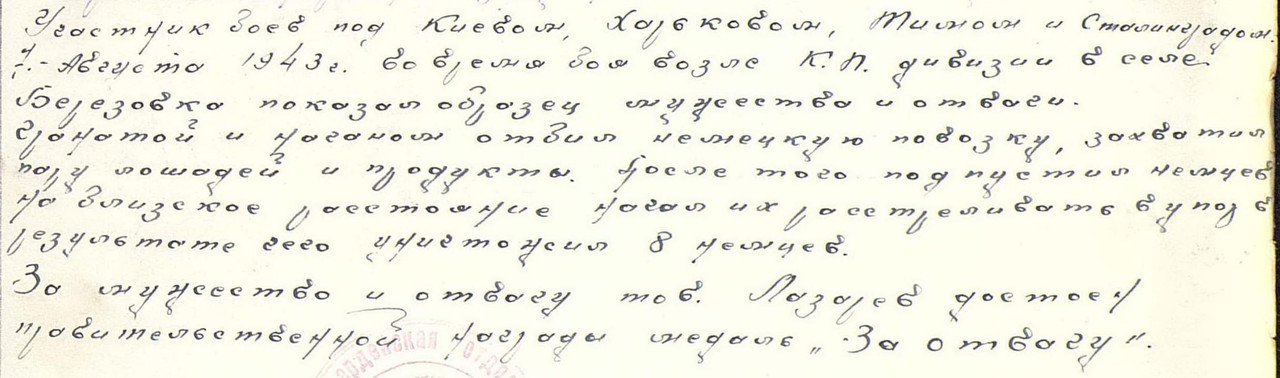 Участник боев под Киевом, Харьковом, Тимом и Сталинградом.
7.- Августа 1943г. во время боя возле К.П. дивизии в селе
Березовка показал образец мужества и отваги.
Гранатой и наганом отбил немецкую повозку, захватил
пару лошадей и продукты. После того подпустил немцев
на близское расстояние начал их расстреливать в упор в
результате чего уничтожил 8 немцев.
За мужество и отвагу тов. Лазарев достоен
правительственной награды медаль „За отвагу".